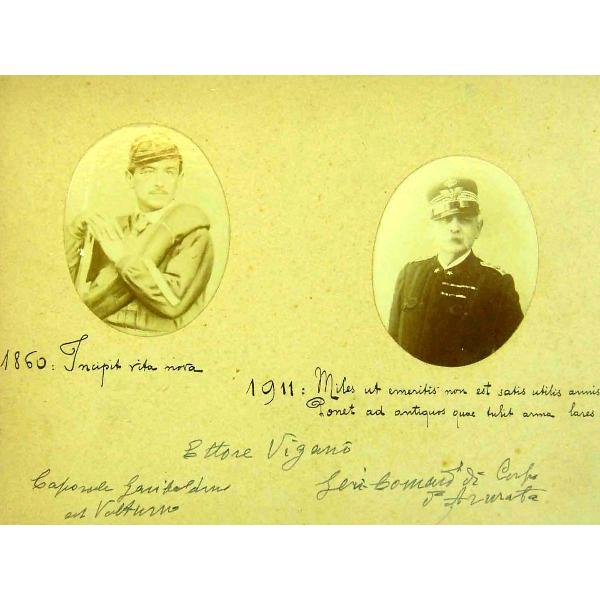 1860: Incipit vita nova
1911: Miles ut emeritis non est satis utilis annis
Ponet ad antiquos quae tulit arma lares
Ettore Viganò
Caporale Garibaldino
al Volturno
Comand di Corpo
d'Armata